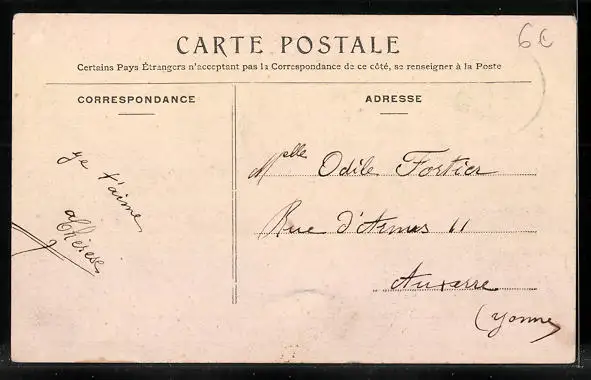 6€
CARTE POSTALE
Certains Pays Étrangers n'acceptant pas la Correspondance de ce côté, se renseigner à la Poste
CORRESPONDANCE
ADRESSE
Je t'aime
Thérèse
Melle Odile Fortier
Rue d'Azmus 11
Auxerre
(Yonne)